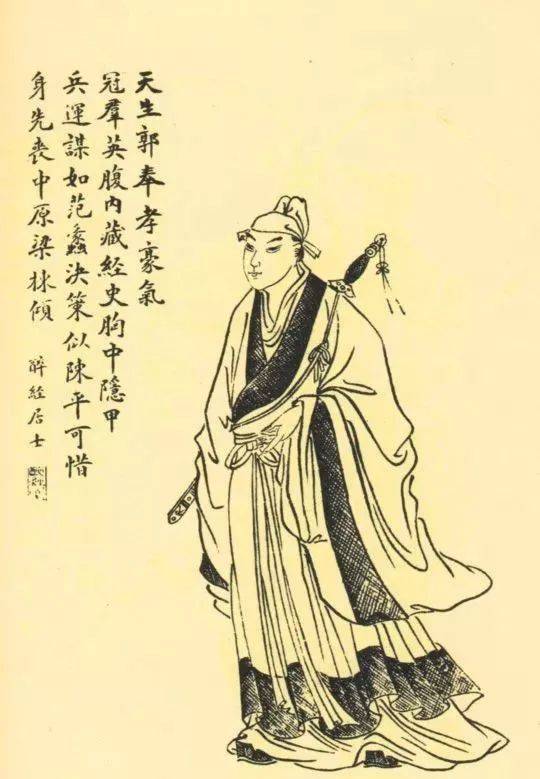 天生郭奉孝豪氣
冠羣英腹內藏經史胸中隱甲
兵運謀如范蠡決策似陳平可惜
身先喪中原梁棟傾
醉經居士